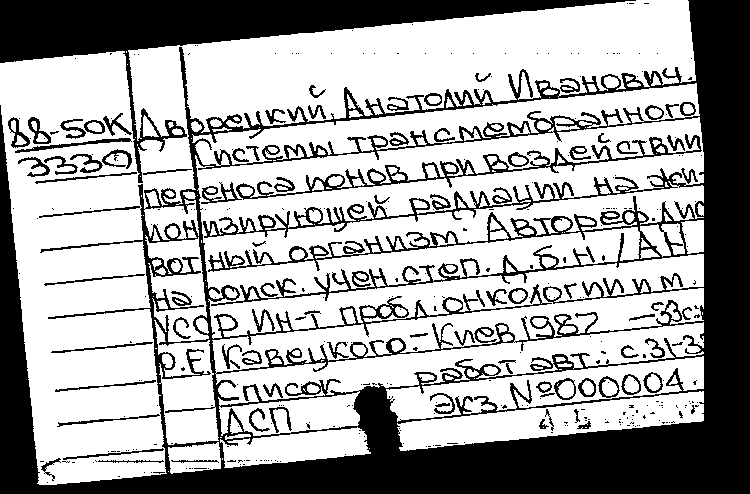 88-50К Дворецкий, Анатолий Иванович.
3330 Системы трансмембранного
переноса ионов при воздействии
ионизирующей радиации на жи-
вотный организм: Автореф. дис
на соиск. учен. степ. д.б.н. / АН
УССР, Ин-т пробл. онкологии им.
Р.Е. Кавецкого.- Киев, 1987 -33с.
Список работ авт.: с.31-3
ДСП. Экз. №000004.